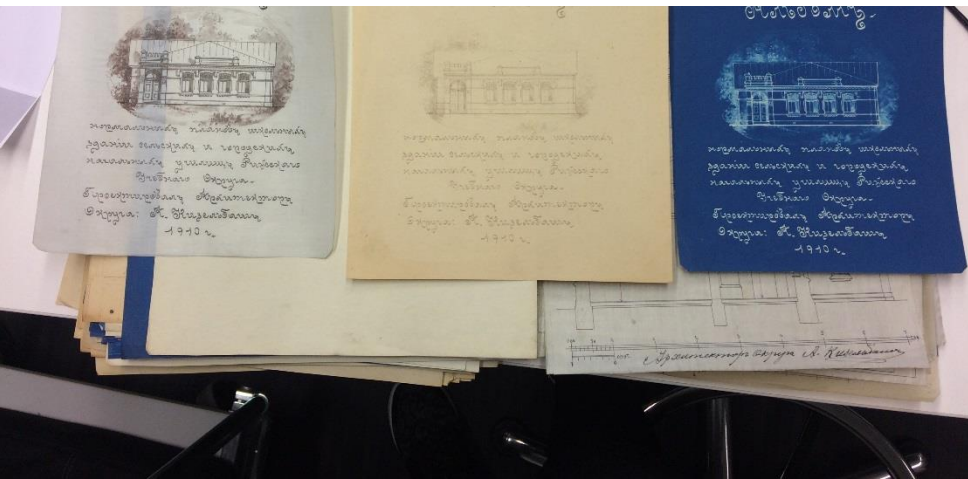 нормальныхъ плановъ школьныхъ
зданій сельскихъ и городскихъ
начальныхъ училищъ Рижскаго
Учебнаго Округа.
Проектировалъ Архитекторъ
Округа: А. Кизельбашъ
1910 г.
нормальныхъ плановъ школьныхъ
зданій сельскихъ и городскихъ
начальныхъ училищъ Рижскаго
Учебнаго Округа.
Проектировалъ Архитекторъ
Округа: А. Кизельбашъ
1910 г.
Альбомъ.
нормальныхъ плановъ школьныхъ
зданій сельскихъ и городскихъ
начальныхъ училищъ Рижскаго
Учебнаго Округа.
Проектировалъ Архитекторъ
Округа: А. Кизельбашъ
1910 г.
Архитекторъ Округа А. Кизельбашъ